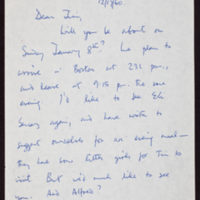 12/17/60
Dear Jim,
Will you be about on
Sunday January 8th? We plan to
arrive in Boston at 2:31 p.m.,
and leave at 9:15 p.m. the same
evening. I'd like to see
again, and have wrote to
suggest ourselves for an evening meal—
they had some little girls for Tim to
visit. But we'd much like to see
you. And Alfred?